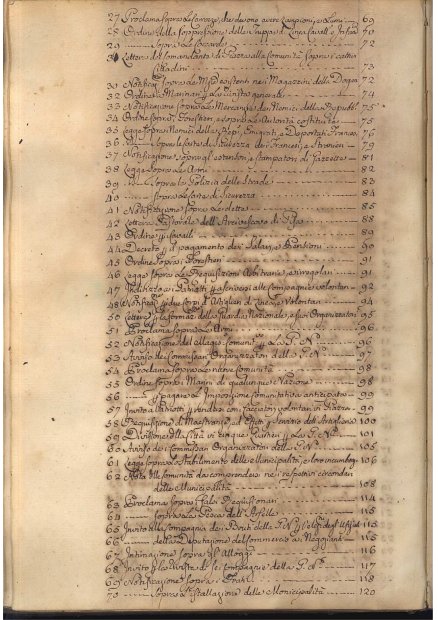 27 Proclama sopra le Carozze, che devono avere Lampioni, e Lumi 69
28 Ordine della soppressione delle Truppe di Linea Cavall. e Infant. 70
29 Sopra le Coccarde 72
Lettera del Comandante di Piazza alla Comunità sopra i cattivi
Cittadini 73
30 Notificaz. sopra le Mercanzie esistenti nei Magazzini della Dogana 72
32 Ordine a Marinari Generali 74
33 Notificazione sopra le Mercanzie dei Nemici della Repubbl. 75
34 Ordine sopra i Forestieri, e sopra le Autorità costituite 75
35 Legge sopra i Nemici della Rep. Emigrati e Deportati Francesi 76
36 Sopra le Carte di Sicurezza dei Francesi, e Stranieri 79
37 Notificazione sopra gli estensori, e stampatori di Gazzette 81
38 Legge sopra le Armi 82
39 sopra la Polizia delle Strade 83
40 sopra le Carte di Sicurezza 84
41 Notificazione sopra le 85
42 Lettera Pastorale dell' Arcivescovo di Pisa 88
43 Ordine p. i Cavalli 89
44 Decreto p. il pagamento dei Salari, e Pensioni 90
45 Ordine Sopra i Forestieri 91
46 Legge sopra le Requisizioni Arbitrarie, e irregolari 91
47 Indirizzo ai Patriotti p. ascriversi alle Compagnie volontarie 92
48 Notificaz. p. due Corpi d'Artiglieri di Linea e Volontari 94
50 Lettera p. la formaz. della Guardia Nazionale, e suoi Organizzatori 95
51 Proclama sopra le Armi 96
52 Notificazione del Maggio Comunit. p. la G. N. 96
53 Avviso dei Commissari Organizzatori della G. N. 97
54 Proclama sopra le nuove Comunità 98
55 Ordine sopra i Marini di qualunque Nazione 98
56 p. pagare le Imposizione Comunitativa anticipata 99
57 Invito ai Patriotti p. rendersi con Cacciatori volontari in Piazza 99
58 Requisizione di Maestranze, ed Effetti p. servizio dell'Artiglieria 100
59 Divisione della Città in cinque Quartieri p. la G. N. 101
60 Avviso dei Commissari Organizzatori della G. N. 105
61 Legge sopra lo stabilimento delle Municipalità, e loro incumbenze 106
62 Nota delle Comunità da comprendersi nei respettivi circondari
delle Municipalità 108
63 Proclama sopra Requisionari 114
64 sopra la Pesca dell' Arselle 115
65 Invito alla Compagnia dei Bersi. della G. N. 115
66 della Deputazione del Commercio ai Negozianti 115
67 Intimazione sopra gli Alloggi 116
68 Invito p. la Rivista di sei Compagnie della G. N. 117
69 Notificazione sopra i Grani 118
70 Sopra l'istallazione delle Municipalità 120